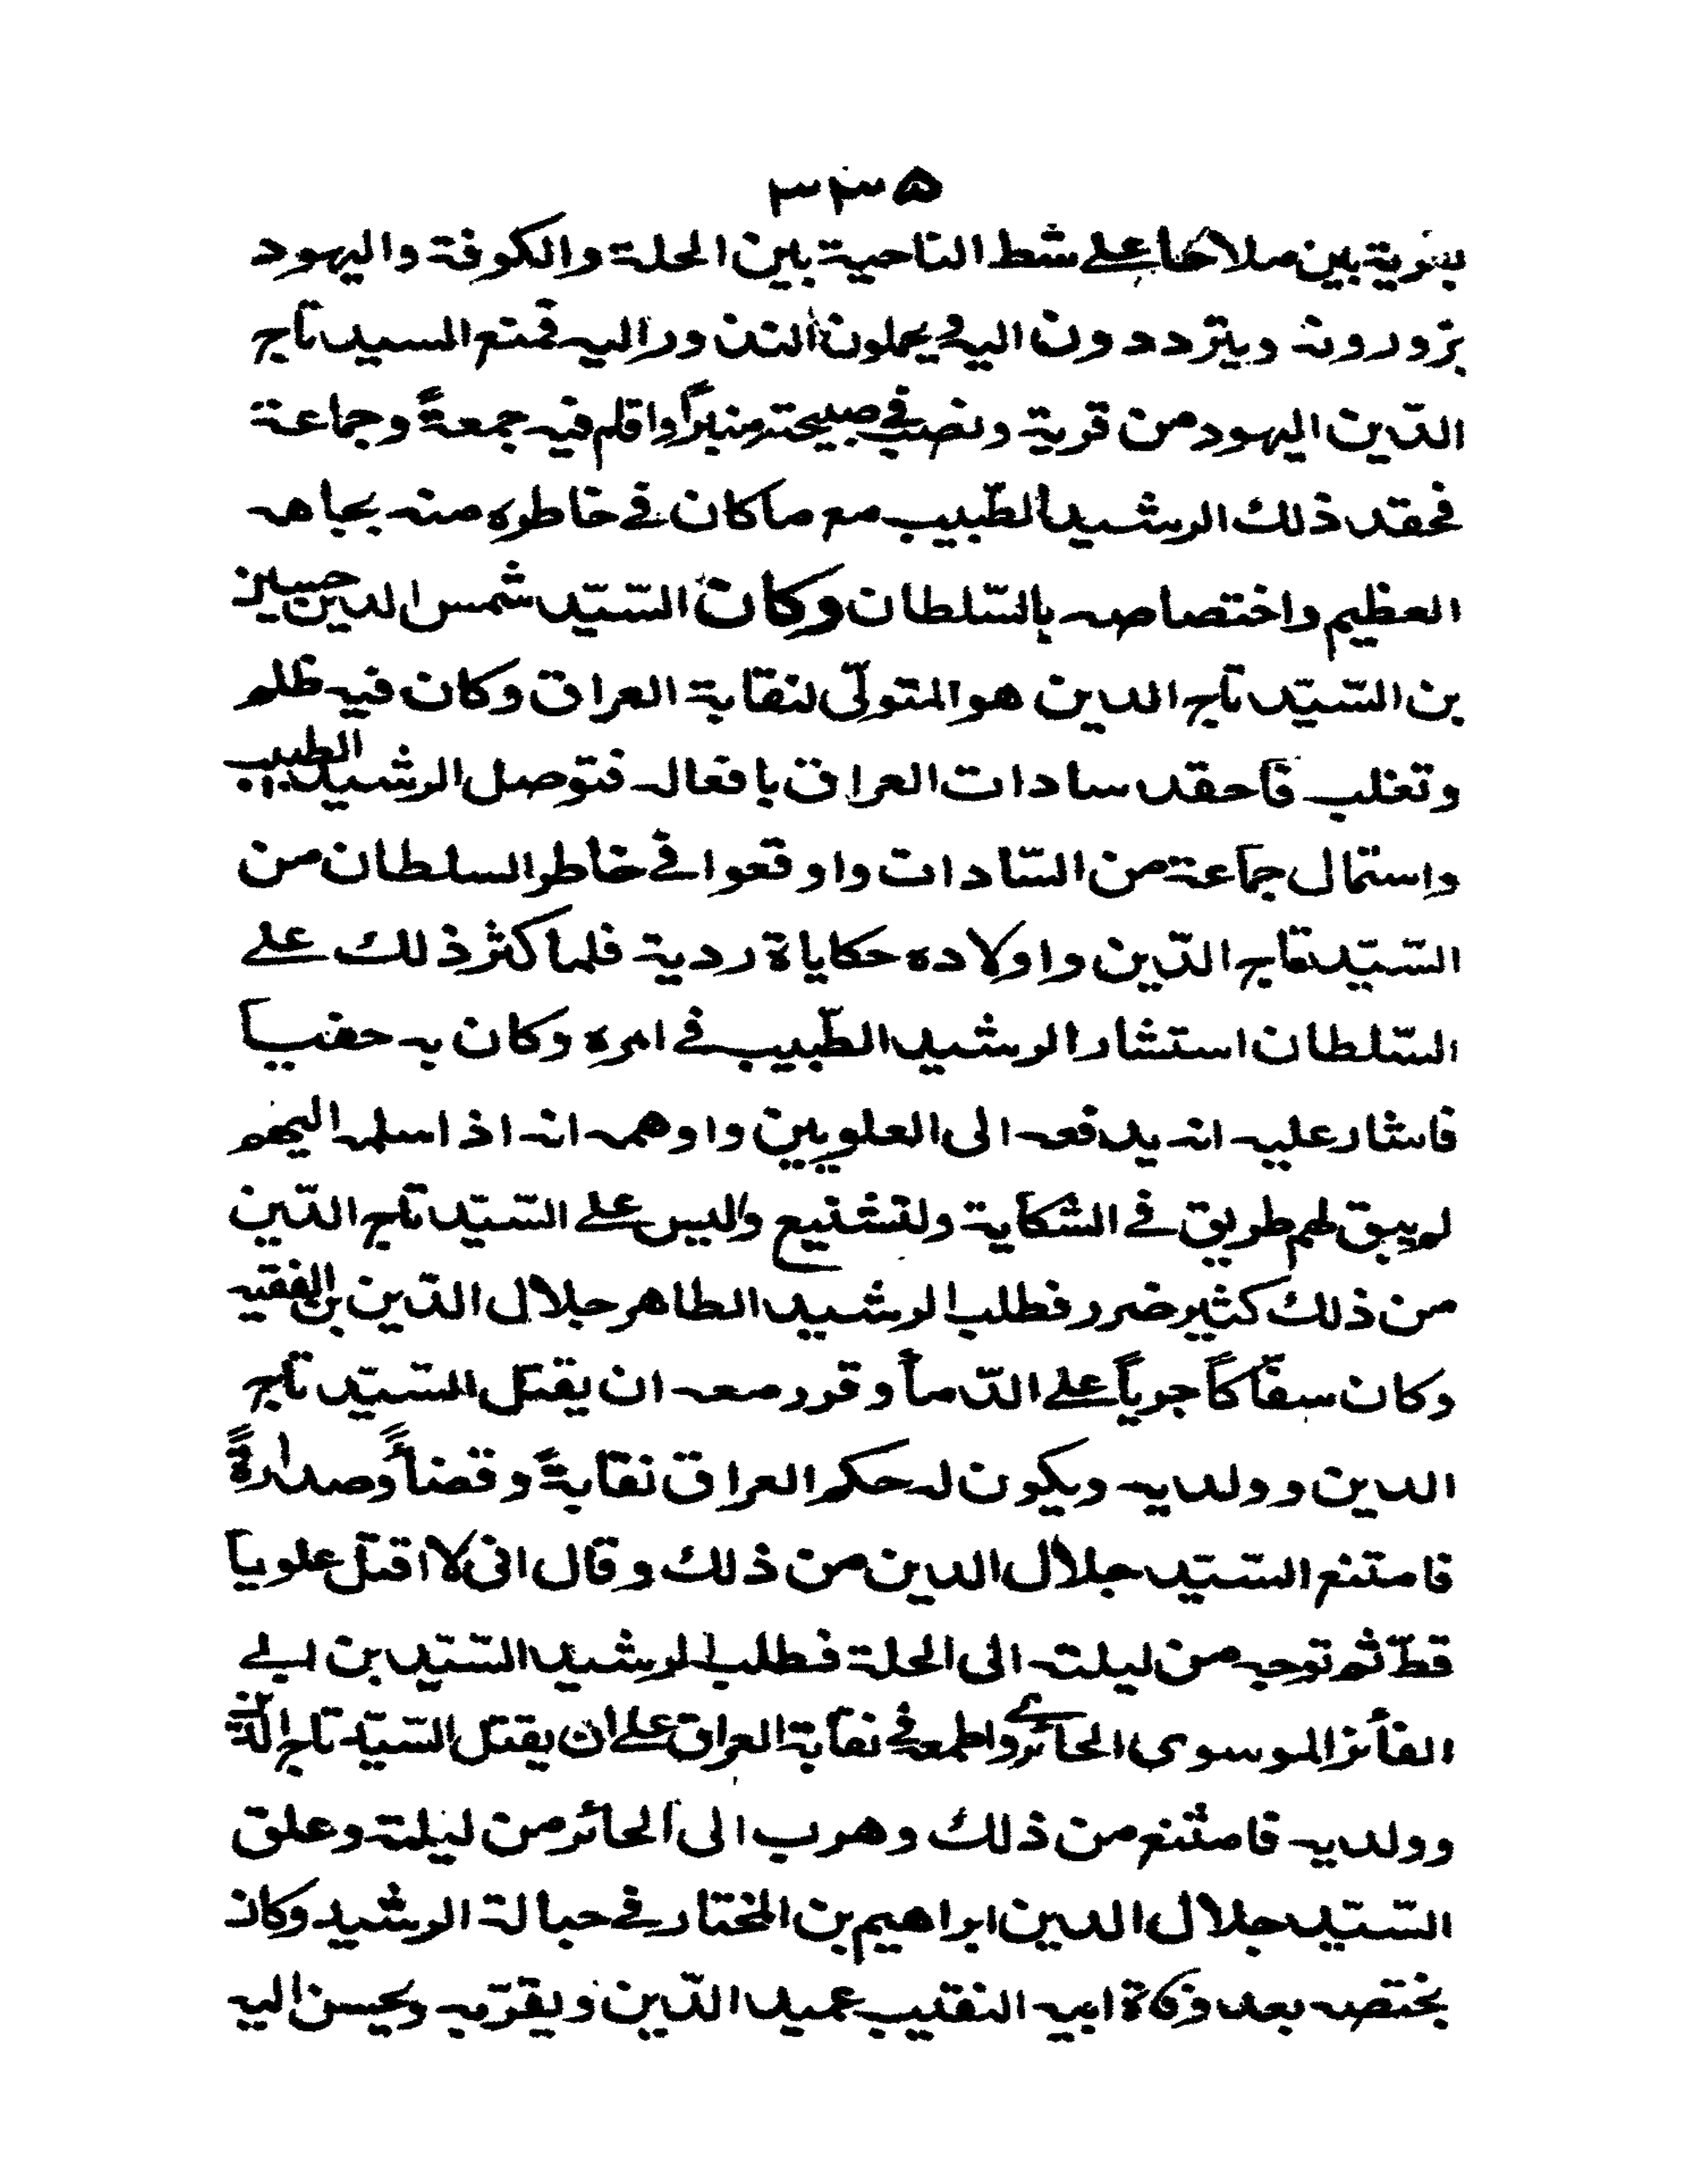 ٣٣٥
بتربة بين ملاحا على شط الناحية بين الحلة والكوفة واليهود
يزورونه ويترددون اليه ويحملون النذور اليه فمنع السيد تاج
الدّين اليهود من قربة ونصب في صبيحته منبراً واقام فيه جمعةً وجماعة
فحقد ذلك الرشيد الطّبيب مع ما كان في خاطره منه بجاهه
العظيم واختصاصه بالسّلطان وكان السّيّد شمس الدين حسين
بن السّيّد تاج الدين هو المتولّى لنقابة العراق وكان فيه ظلم
وتغلب فاحقد سادات العراق بافعاله فتوصل الرشيد الطبيب
واستمال جماعة من السّادات واوقعوا في خاطر السلطان من
السّيّد تاج الدّين واولاده حكاياة ردية فلما كثر ذلك على
السّلطان استشار الرشيد الطّبيب في امره وكان به حفيا
فاشار عليه انه يدفعه الى العلويين واوهمه انه اذا سلمه اليهم
لم يبق لهم طريق في الشكاية ولتشنيع وليس على السّيّد تاج الدّين
من ذلك كثير ضرر فطلب الرشيد الطاهر جلال الدّين بن الفقيه
وكان سفّاكاً جرياً على الدّمآ وقرر معه ان يقتل السّيّد تاج
الدين وولديه ويكون له حكم العراق نقابةً وقضآءً وصدارةً
فامتنع السّيّد جلال الدين من ذلك وقال انى لا اقتل علوياً
قطّ ثم توجه من ليلته الى الحلة فطلب الرشيد السّيّد بن ابي
الفائز الموسوى الحائري واطمعه في نقابة العراق على ان يقتل السّيّد تاج الدّين
وولديه فامتنع من ذلك وهرب الى الحائر من ليلته وعلق
السّيّد جلال الدين ابراهيم بن المختار في حبالة الرشيد وكان
يختصه بعد وفاة ابيه النقيب عميد الدّين ويقرّبه ويحسن اليه